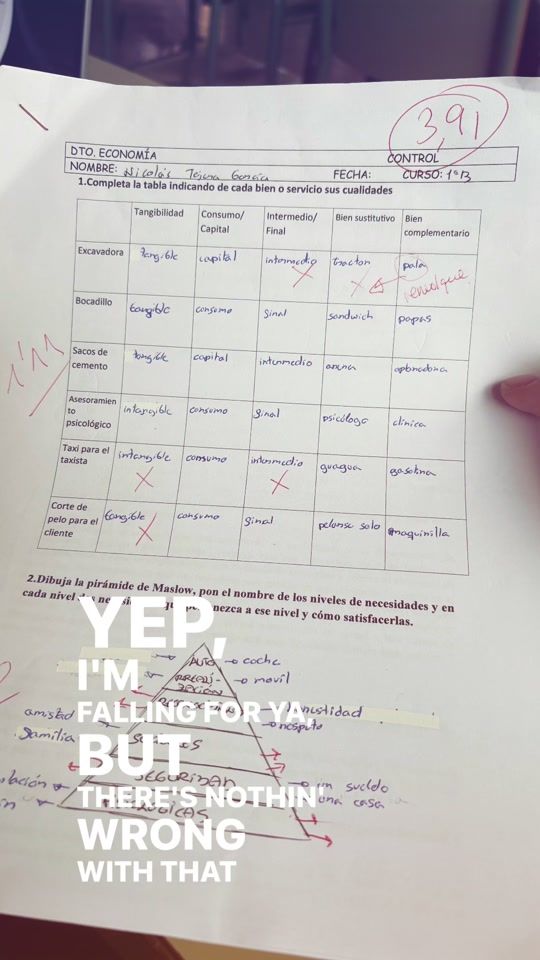 3,91
DTO. ECONOMÍA
CONTROL
NOMBRE: Nicolás Tejera García FECHA: CURSO: 1º B
1.Completa la tabla indicando de cada bien o servicio sus cualidades
Tangibilidad Consumo/ Capital Intermedio/ Final Bien sustitutivo Bien complementario
Excavadora tangible capital intermedio tractor pala
remolque
Bocadillo tangible consumo final sandwich papas
1'11
Sacos de cemento tangible capital intermedio arena
Asesoramien to psicológico intangible consumo final psicólogo clínica
Taxi para el taxista intangible consumo intermedio guagua gasolina
Corte de pelo para el cliente tangible consumo final pelarse solo maquinilla
2.Dibuja la pirámide de Maslow, pon el nombre de los niveles de necesidades y en
cada nivel nezca a ese nivel y cómo satisfacerlas.
YEP,
I'M
FALLING FOR YA,
BUT
THERE'S NOTHIN'
WRONG
WITH THAT
AUTO coche
movil
respeto
amistad
familia
SEGURIDAD un sueldo
una casa